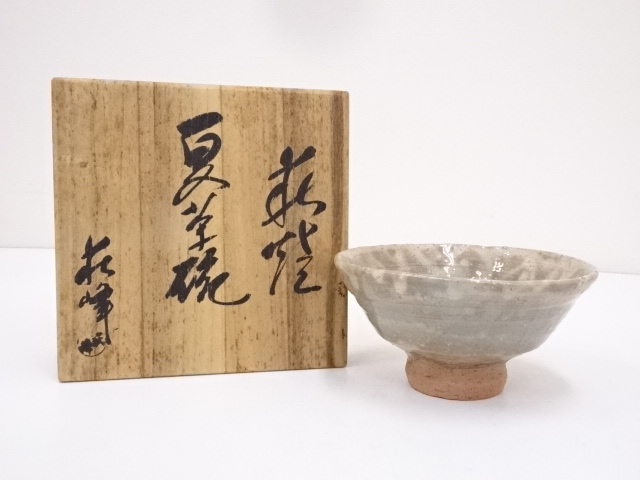 萩焼
夏草碗
萩峰